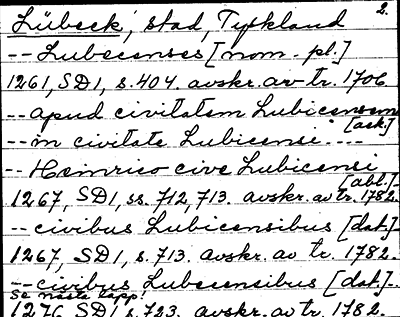 2.
Lübeck, stad, Tyskland
-- Lubecenses [nom. pl.]
1261, SD1, s. 404. avskr. av tr. 1706.
-- apud civitatem Lubicensem [ack.]
-- in civitate Lubicensi ---
-- Heinrico cive Lubicensi [abl.]
1267, SD1, ss. 712, 713. avskr. av tr. 1782.
-- civibus Lubicensibus [dat.]
1267, SD1, s. 713. avskr. av tr. 1782.
-- civibus Lubecensibus [dat.]
Se nästa lapp!
1276 SD1 s. 723. avskr. av tr. 1782.